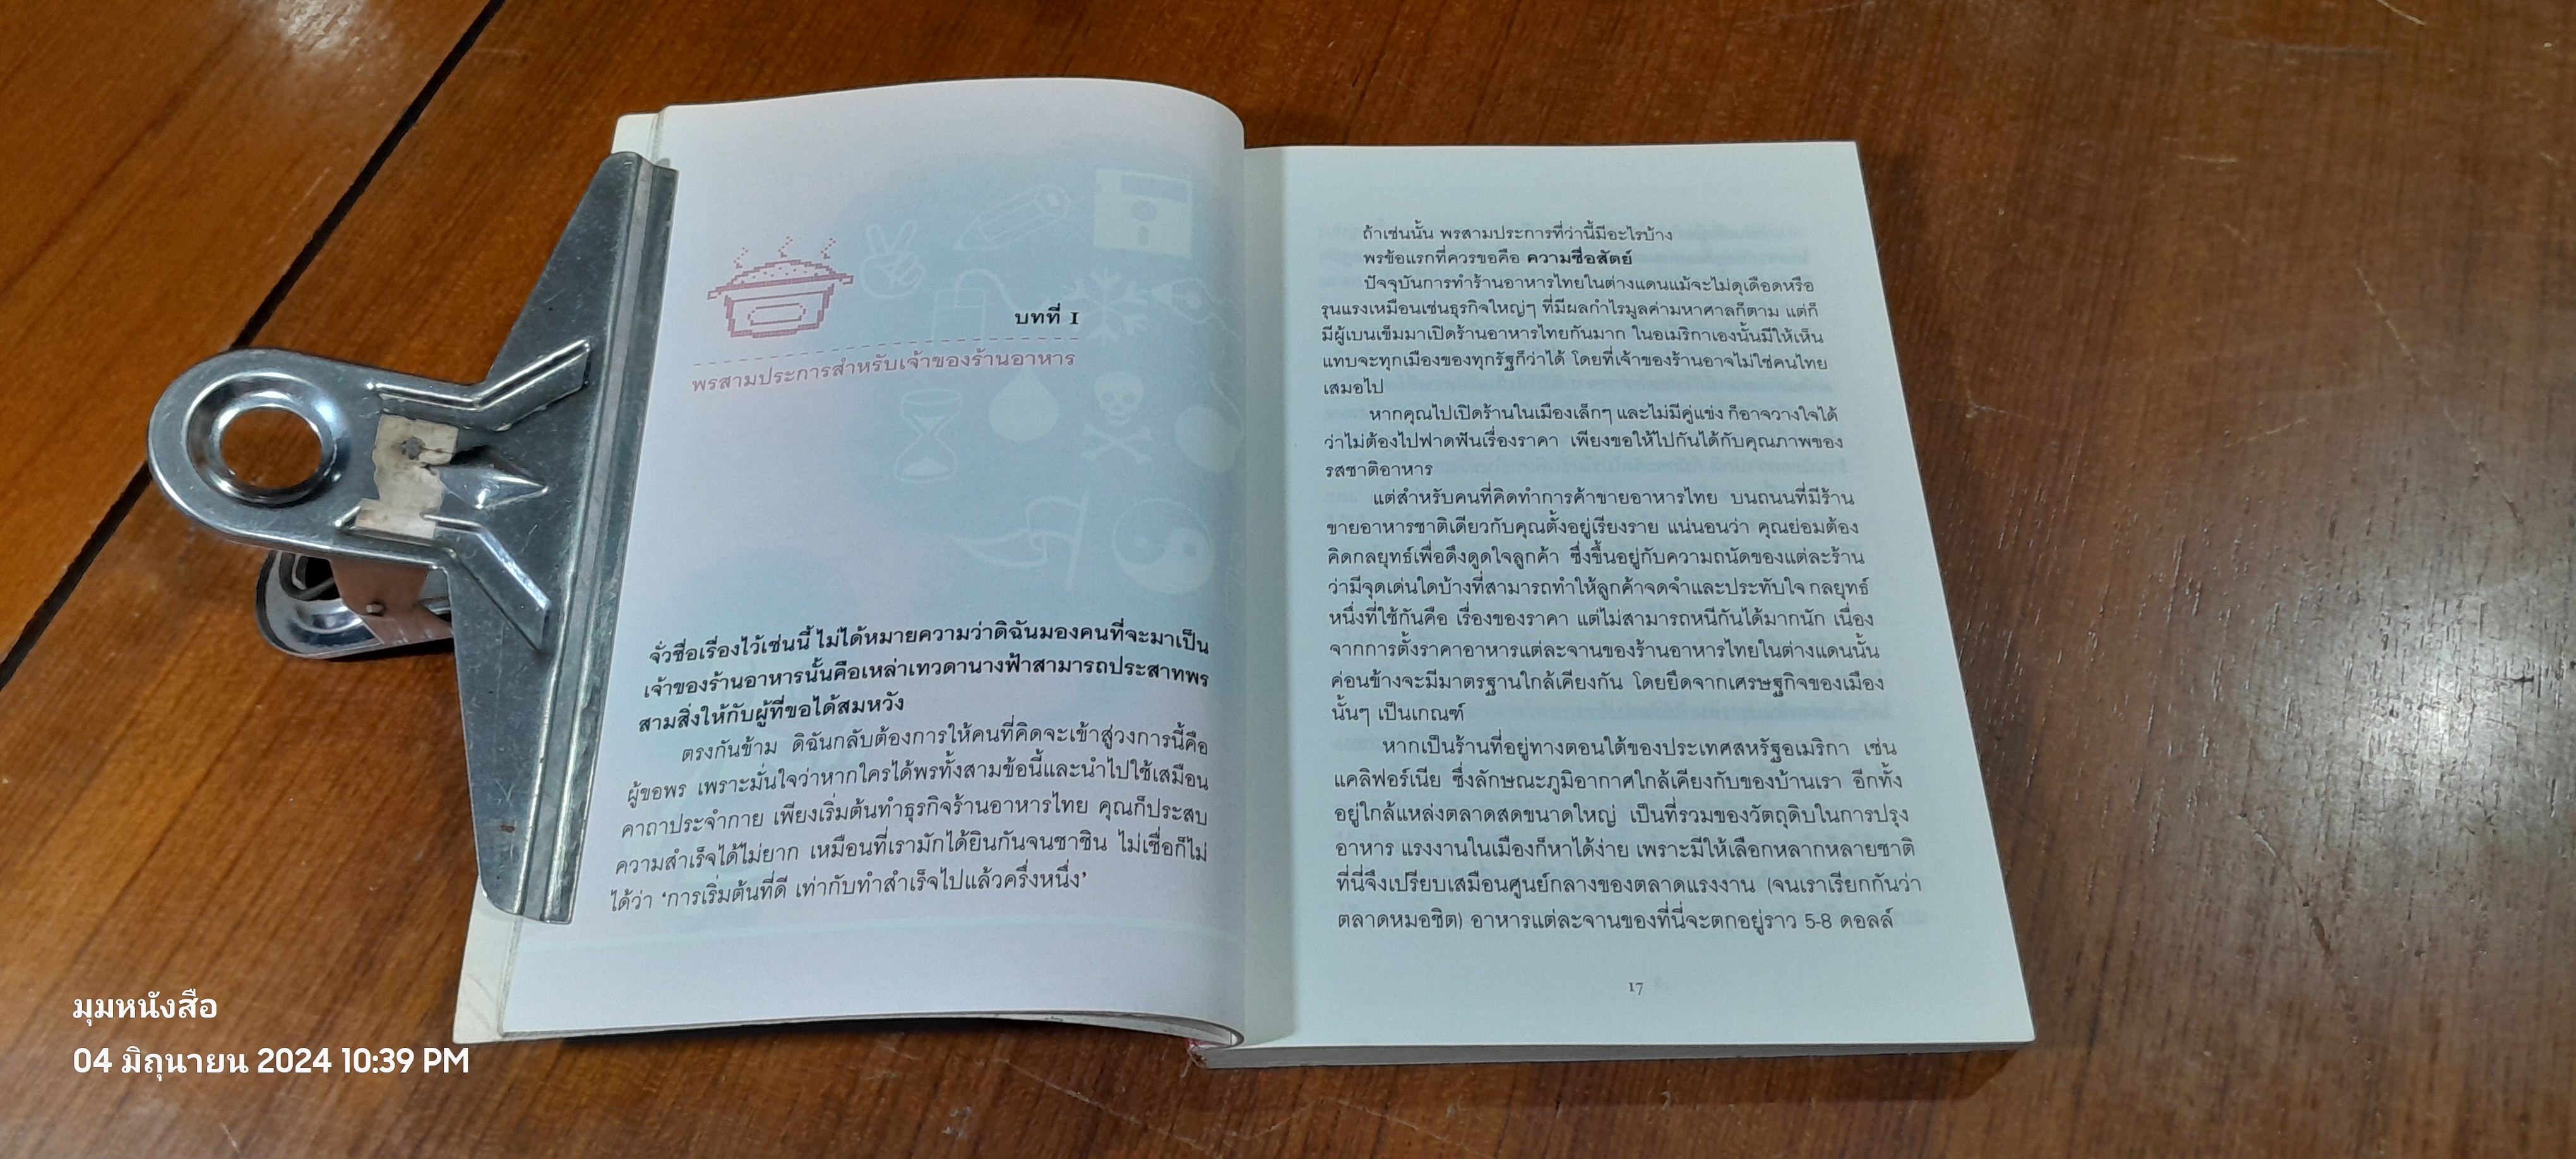 บทที่ 1
พรสามประการสำหรับเจ้าของร้านอาหาร
จั่วชื่อเรื่องไว้เช่นนี้ ไม่ได้หมายความว่าดิฉันมองคนที่จะมาเป็น
เจ้าของร้านอาหารนั้นคือเหล่าเทวดานางฟ้าสามารถประสาทพร
สามสิ่งให้กับผู้ที่ขอได้สมหวัง
ตรงกันข้าม ดิฉันกลับต้องการให้คนที่คิดจะเข้าสู่วงการนี้คือ
ผู้ขอพร เพราะมั่นใจว่าหากใครได้พรทั้งสามข้อนี้และนำไปใช้เสมือน
คาถาประจำกาย เพียงเริ่มต้นทำธุรกิจร้านอาหารไทย คุณก็ประสบ
ความสำเร็จได้ไม่ยาก เหมือนที่เรามักได้ยินกันจนชาชิน ไม่เชื่อก็ไม่
ได้ว่า ‘การเริ่มต้นที่ดี เท่ากับทำสำเร็จไปแล้วครึ่งหนึ่ง’
ถ้าเช่นนั้น พรสามประการที่ว่านี้มีอะไรบ้าง
พรข้อแรกที่ควรขอคือ ความซื่อสัตย์
ปัจจุบันการทำร้านอาหารไทยในต่างแดนแม้จะไม่ดุเดือดหรือ
รุนแรงเหมือนเช่นธุรกิจใหญ่ๆ ที่มีผลกำไรมูลค่ามหาศาลก็ตาม แต่ก็
มีผู้เบนเข็มมาเปิดร้านอาหารไทยกันมาก ในอเมริกาเองนั้นมีให้เห็น
แทบจะทุกเมืองของทุกรัฐก็ว่าได้ โดยที่เจ้าของร้านอาจไม่ใช่คนไทย
เสมอไป
หากคุณไปเปิดร้านในเมืองเล็กๆ และไม่มีคู่แข่ง ก็อาจวางใจได้
ว่าไม่ต้องไปฟาดฟันเรื่องราคา เพียงขอให้ไปกันได้กับคุณภาพของ
รสชาติอาหาร
แต่สำหรับคนที่คิดทำการค้าขายอาหารไทย บนถนนที่มีร้าน
ขายอาหารชาติเดียวกับคุณตั้งอยู่เรียงราย แน่นอนว่า คุณย่อมต้อง
คิดกลยุทธ์เพื่อดึงดูดใจลูกค้า ซึ่งขึ้นอยู่กับความถนัดของแต่ละร้าน
ว่ามีจุดเด่นใดบ้างที่สามารถทำให้ลูกค้าจดจำและประทับใจ กลยุทธ์
หนึ่งที่ใช้กันคือ เรื่องของราคา แต่ไม่สามารถหนีกันได้มากนัก เนื่อง
จากการตั้งราคาอาหารแต่ละจานของร้านอาหารไทยในต่างแดนนั้น
ค่อนข้างจะมีมาตรฐานใกล้เคียงกัน โดยยึดจากเศรษฐกิจของเมือง
นั้นๆ เป็นเกณฑ์
หากเป็นร้านที่อยู่ทางตอนใต้ของประเทศสหรัฐอเมริกา เช่น
แคลิฟอร์เนีย ซึ่งลักษณะภูมิอากาศใกล้เคียงกับของบ้านเรา อีกทั้ง
อยู่ใกล้แหล่งตลาดสดขนาดใหญ่ เป็นที่รวมของวัตถุดิบในการปรุง
อาหาร แรงงานในเมืองก็หาได้ง่าย เพราะมีให้เลือกหลากหลายชาติ
ที่นี่จึงเปรียบเสมือนศูนย์กลางของตลาดแรงงาน (จนเราเรียกกันว่า
ตลาดหมอชิต) อาหารแต่ละจานของที่นี่จะตกอยู่ราว 5-8 ดอลล์
17
มุมหนังสือ
04 มิถุนายน 2024 10:39 PM